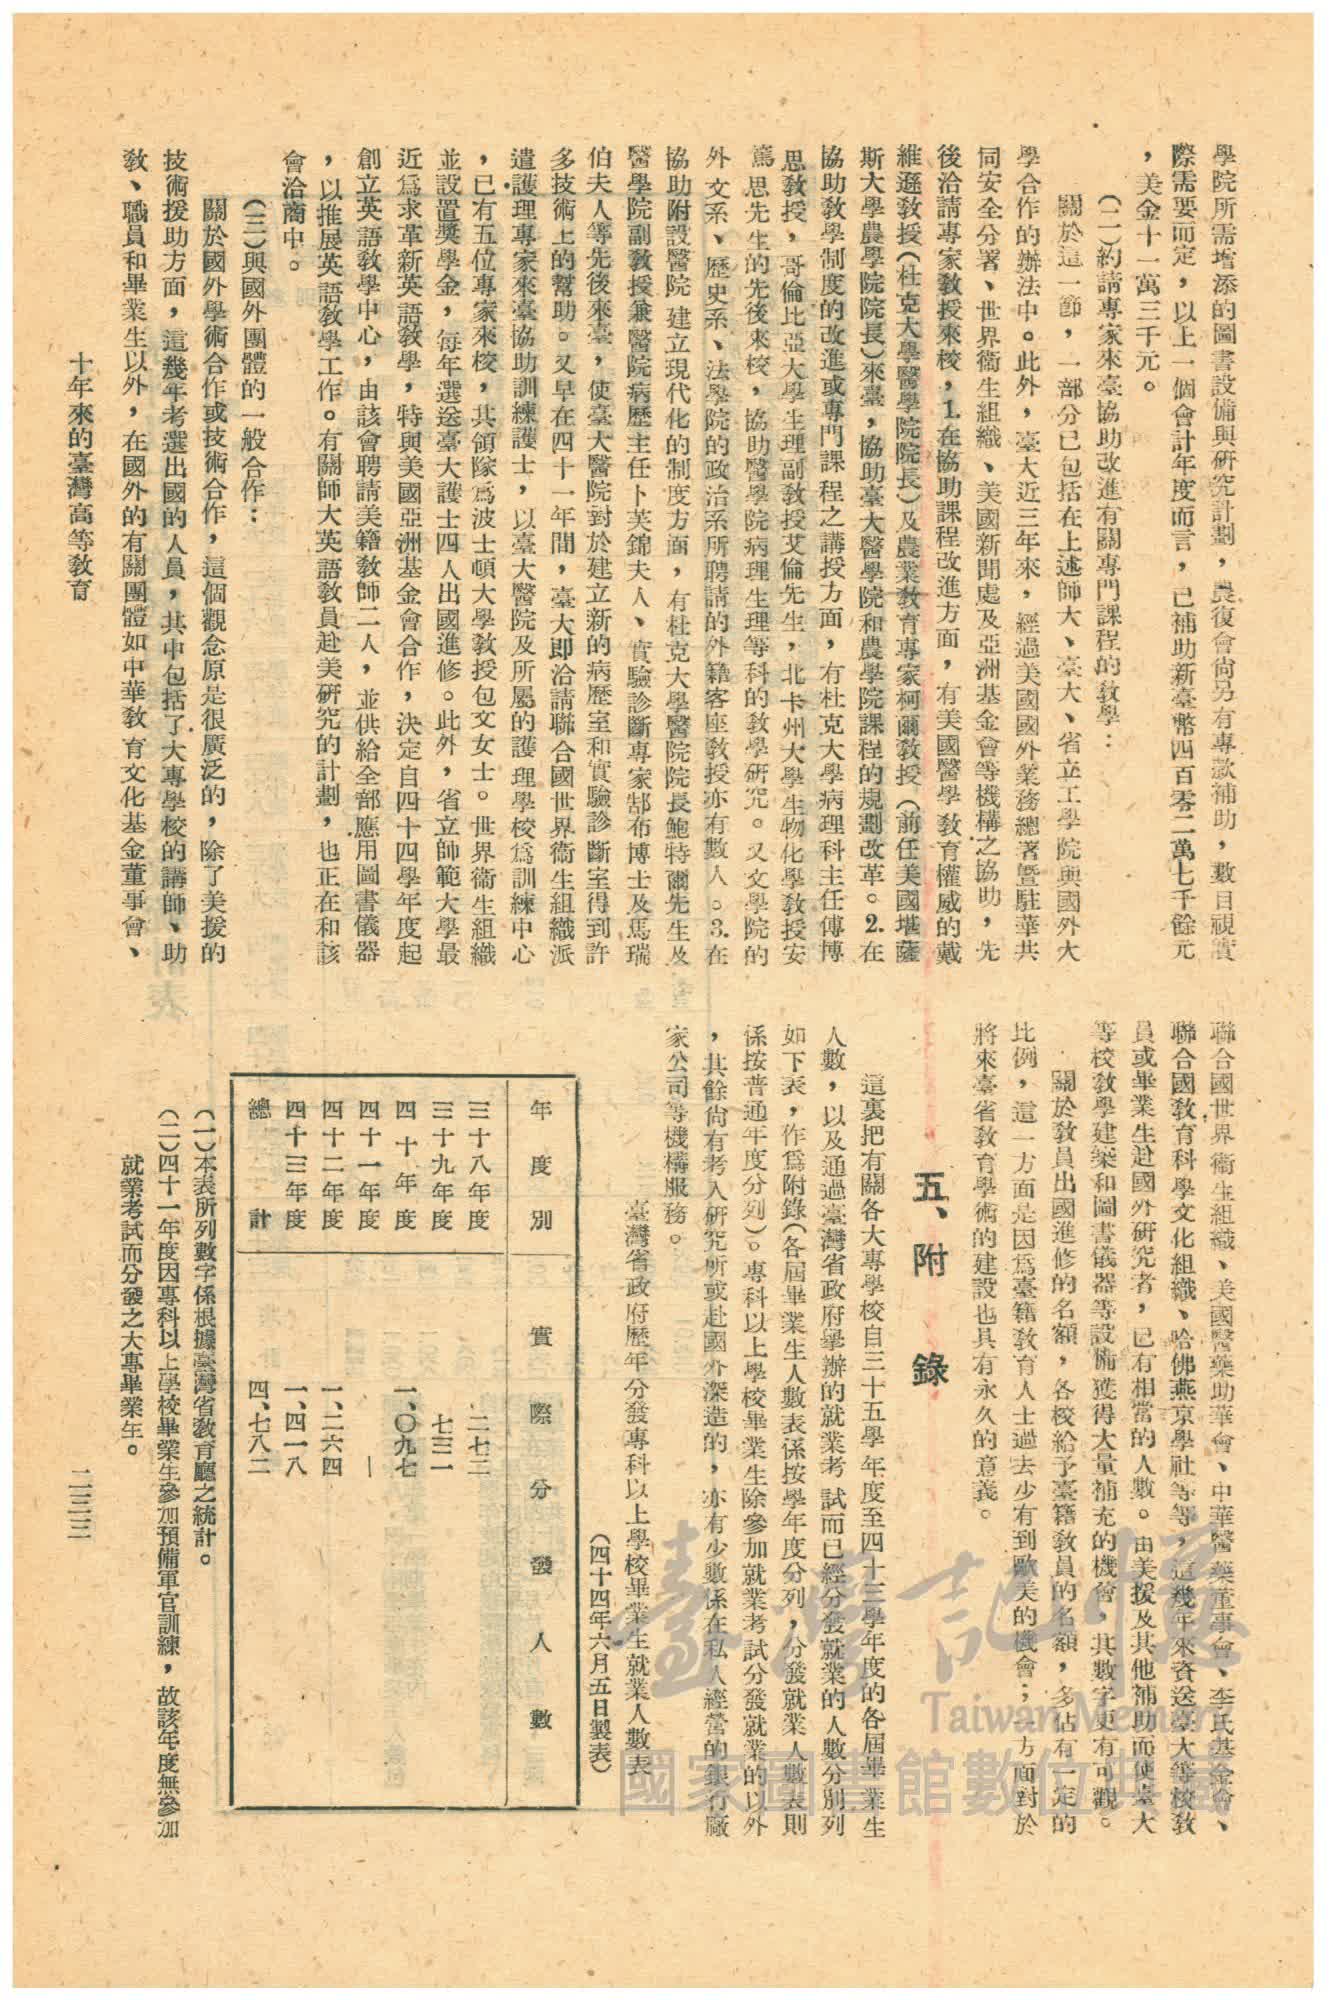 學院所需增添的圖書設備與研究計劃，農復會尙另有專款補助，數目視實
際需要而定，以上一個會計年度而言，已補助新臺幣四百零二萬七千餘元
，美金十一萬三千元。
（二）約請專家來臺協助改進有關專門課程的敎學：
關於這一節，一部分已包括在上述師大、臺大、省立工學院與國外大
學合作的辦法中。此外，臺大近三年來，經過美國國外業務總署暨駐華共
同安全分署、世界衞生組織、美國新聞處及亞洲基金會等機構之協助，先
後洽請專家敎授來校，1.在協助課程改進方面，有美國醫學敎育權威的戴
維遜敎授（杜克大學醫學院院長）及農業敎育專家柯爾敎授（前任美國堪薩
斯大學農學院院長）來臺，協助臺大醫學院和農學院課程的規劃改革。2.在
協助敎學制度的改進或專門課程之講授方面，有杜克大學病理科主任傅博
思敎授，哥倫比亞大學生理副敎授艾倫先生，北卡州大學生物化學敎授安
篤思先生的先後來校，協助醫學院病理生理等科的敎學研究。又文學院的
外文系、歷史系、法學院的政治系所聘請的外籍客座敎授亦有數人。3.在
協助附設醫院建立現代化的制度方面，有杜克大學醫院院長鮑特爾先生及
醫學院副敎授兼醫院病歷主任卜芙錦夫人、實驗診斷專家郜布博士及馬瑞
伯夫人等先後來臺，使臺大醫院對於建立新的病歷室和實驗診斷室得到許
多技術上的幫助。又早在四十一年間，臺大即洽請聯合國世界衞生組織派
遣護理專家來臺協助訓練護士，以臺大醫院及所屬的護理學校爲訓練中心
，已有五位專家來校，其領隊爲波士頓大學敎授包文女士。世界衞生組織
並設置獎學金，每年選送臺大護士四人出國進修。此外，省立師範大學最
近爲求革新英語敎學，特與美國亞洲基金會合作，決定自四十四學年度起
創立英語敎學中心，由該會聘請美籍敎師二人，並供給全部應用圖書儀器
，以推展英語敎學工作。有關師大英語敎員赴美研究的計劃，也正在和該
會洽商中。
（三）與國外團體的一般合作：
關於國外學術合作或技術合作，這個觀念原是很廣泛的，除了美援的
技術援助方面，這幾年考選出國的人員，其中包括了大專學校的講師、助
敎、職員和畢業生以外，在國外的有關團體如中華敎育文化基金董事會、
十年來的臺灣高等敎育
聯合國世界衞生組織、美國醫藥助華會、中華醫藥董事會、李氏基金會、
聯合國敎育科學文化組織、哈佛燕京學社等等，這幾年來資送臺大等校敎
員或畢業生赴國外研究者，已有相當的人數。由美援及其他補助而使臺大
等校敎學建築和圖書儀器等設備獲得大量補充的機會，其數字更有可觀。
關於敎員出國進修的名額，各校給予臺籍敎員的名額，多佔有一定的
比例，這一方面是因爲臺籍敎育人士過去少有到歐美的機會；一方面對於
將來臺省敎育學術的建設也具有永久的意義。
五、附錄
這裏把有關各大專學校自三十五學年度至四十三學年度的各屆畢業生
人數，以及通過臺灣省政府舉辦的就業考試而已經分發就業的人數分別列
如下表，作爲附錄（各屆畢業生人數表係按學年度分列，分發就業人數表則
係按普通年度分列）。專科以上學校畢業生除參加就業考試分發就業的以外
，其餘尙有考入硏究所或赴國外深造的，亦有少數係在私人經營的銀行廠
家公司等機構服務。
臺灣省政府歷年分發專科以上學校畢業生就業人數表
（四十四年六月五日製表）
年度別　實際分發人數
三十八年度　二七二
三十九年度　七三一
四十年度　一、〇九七
四十一年度　—
四十二年度　一、二六四
四十三年度　一、四一八
總計　四、七八二
（一）本表所列數字係根據臺灣省敎育廳之統計。
（二）四十一年度因專科以上學校畢業生參加預備軍官訓練，故該年度無參加
就業考試而分發之大專畢業生。
二三三
臺灣記憶
Taiwan Memory
國家圖書館數位典藏